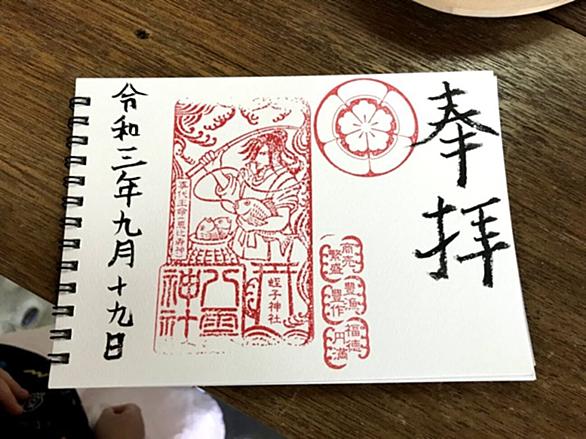 奉拝
商売
繁盛
豊漁
豊作
福徳
円満
蛭子神社
八雲
神社
令和三年九月十九日